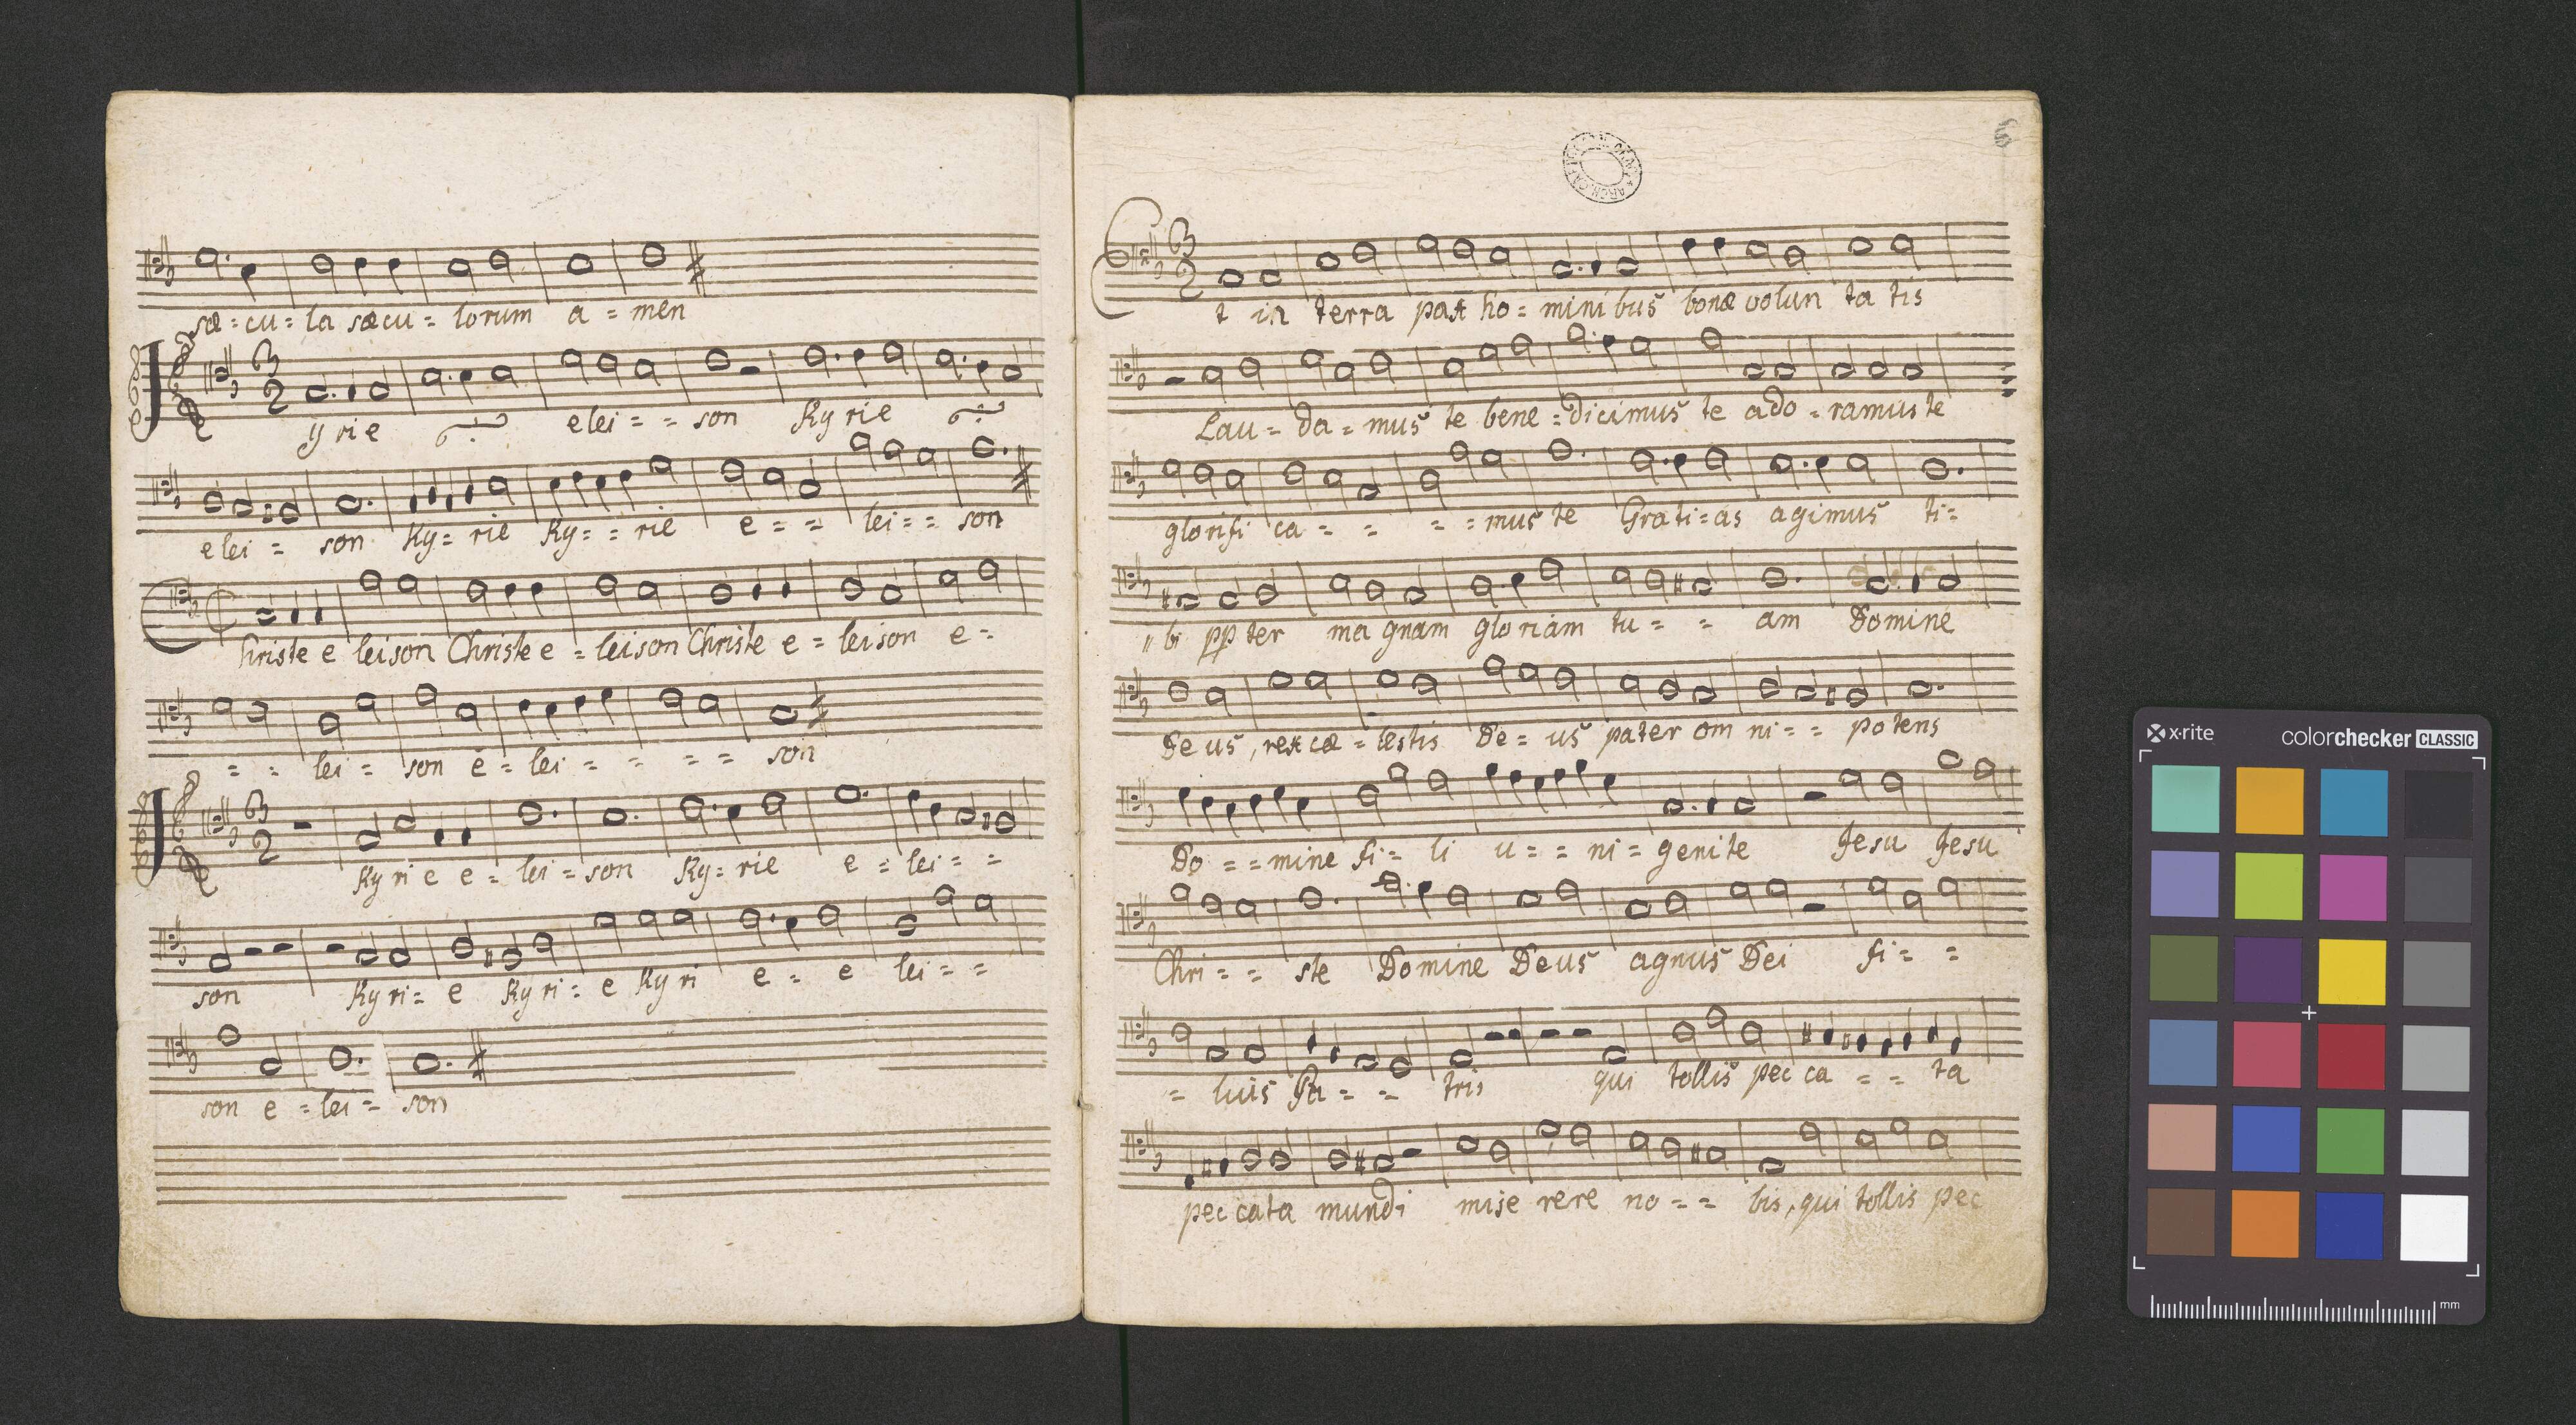 sæ=cu=la sæcu=lorum a=men
3
2
Kyrie elei==son Ky rie
elei = son Ky=rie Ky==rie e== lei== son
Christe e leison Christe e=leison Christe e=leison e=
== lei= son e=lei== == son
3
2
Ky ri e e=lei=son Ky=rie e=lei==
son Ky ri=e Ky ri=e Ky ri e=e lei==
son e=lei= son
6
3
2
Et in terra pax ho=minibus bonæ volun ta tis
Lau=da=mus te bene=dicimus te ado=ramus te
glorifi ca== ==mus te Grati=as agimus ti=
"bi pp ter ma gnam gloriam tu== am Domine
De us, rex cæ=lestis De=us pater om ni== potens
Do==mine fi=li u==ni=genite Jesu Jesu
Chri== ste Domine Deus agnus Dei fi==
= lius Pa== tris qui tollis pec ca== ta
pec cata mundi mise rere no== bis, qui tollis pec
x·rite colorchecker CLASSIC
mm